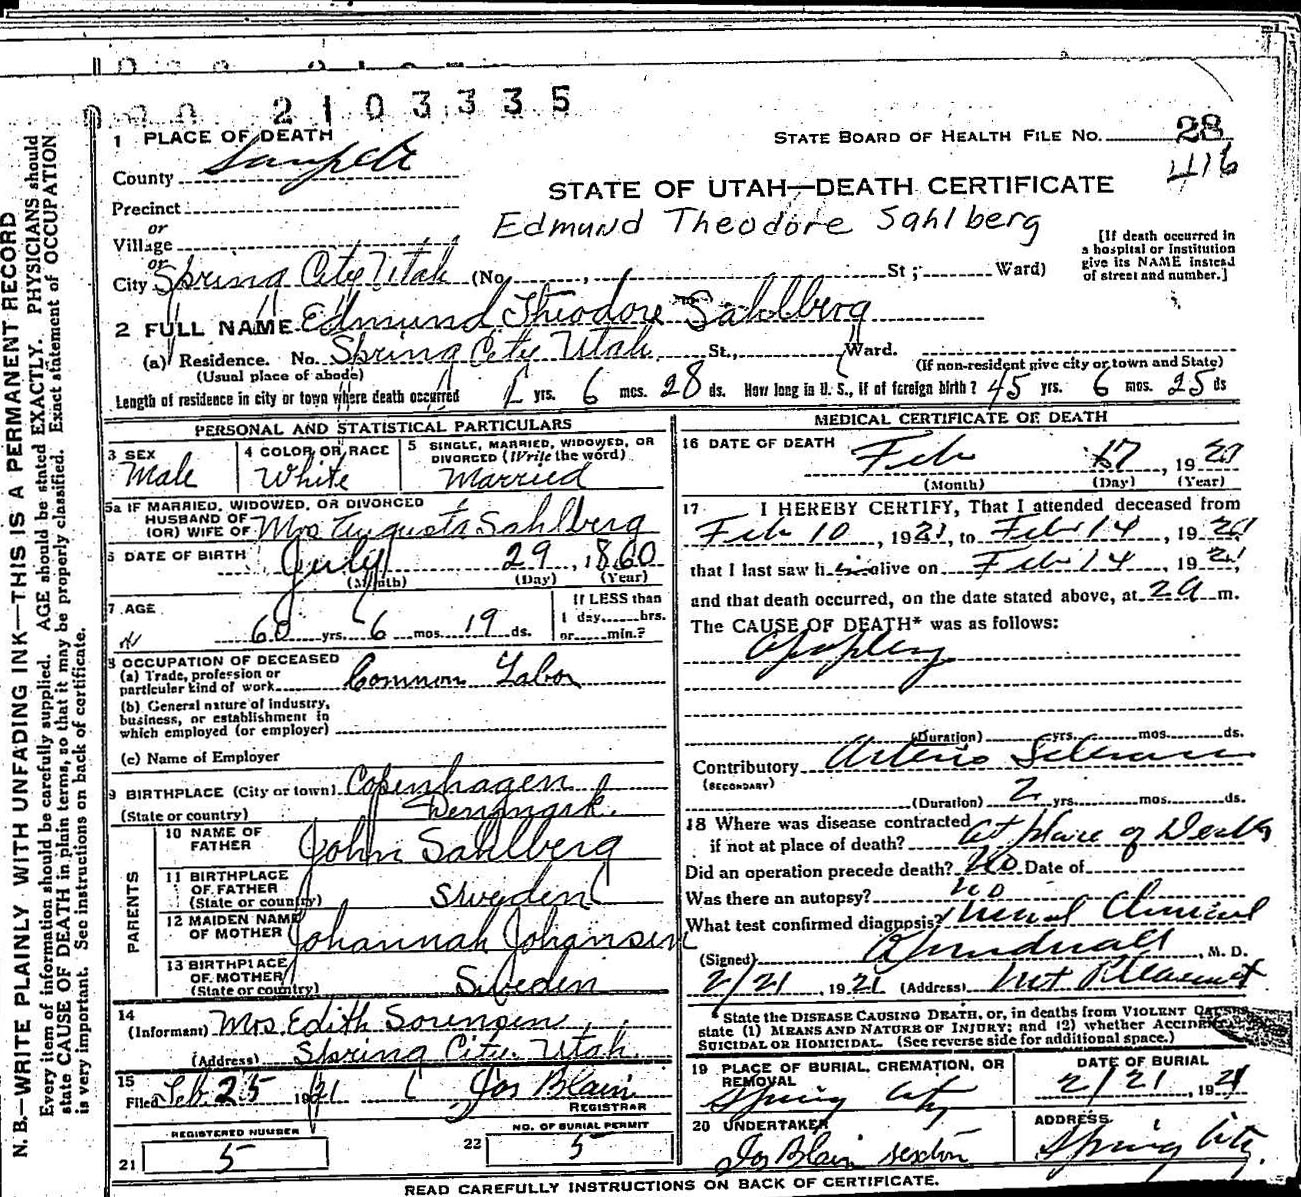 2103335
1 PLACE OF DEATH
STATE BOARD OF HEALTH FILE No. 28
416
County Sanpete
STATE OF UTAH—DEATH CERTIFICATE
Precinct
or
Village
Edmund Theodore Sahlberg
or
City Spring City Utah (No. , St ; Ward)
[If death occurred in
a hospital or institution
give its NAME instead
of street and number.]
2 FULL NAME Edmund Theodore Sahlberg
(a) Residence. No. Spring City Utah St., Ward.
(Usual place of abode)
(If non-resident give city or town and State)
Length of residence in city or town where death occurred yrs. 6 mos. 28 ds. How long in U. S., if of foreign birth? 45 yrs. 6 mos. 25 ds
PERSONAL AND STATISTICAL PARTICULARS
3 SEX
Male
4 COLOR OR RACE
White
5 SINGLE, MARRIED, WIDOWED, OR
DIVORCED (Write the word)
Married
5a IF MARRIED, WIDOWED, OR DIVORCED
HUSBAND OF
(OR) WIFE OF Mrs Augusta Sahlberg
6 DATE OF BIRTH July 29, 1860
(Month) (Day) (Year)
7 AGE
60 yrs. 6 mos. 19 ds.
If LESS than
1 day, hrs.
or min.?
8 OCCUPATION OF DECEASED
(a) Trade, profession or
particular kind of work Common Labor
(b) General nature of industry,
business, or establishment in
which employed (or employer)
(c) Name of Employer
9 BIRTHPLACE (City or town) Copenhagen
(State or country) Denmark.
PARENTS
10 NAME OF
FATHER John Sahlberg
11 BIRTHPLACE
OF FATHER
(State or country) Sweden
12 MAIDEN NAME
OF MOTHER Johannah Johansen
13 BIRTHPLACE
OF MOTHER
(State or country) Sweden
14
(Informant) Mrs Edith Sorensen
(Address) Spring City. Utah.
15
Filed Feb 25 1921 Jos Blain
REGISTRAR
REGISTERED NUMBER
21 5
NO. OF BURIAL PERMIT
22 5
MEDICAL CERTIFICATE OF DEATH
16 DATE OF DEATH
Feb 17, 1921
(Month) (Day) (Year)
17 I HEREBY CERTIFY, That I attended deceased from
Feb 10, 1921, to Feb 14, 1921
that I last saw him alive on Feb 14, 1921
and that death occurred, on the date stated above, at 2 a m.
The CAUSE OF DEATH* was as follows:
Apoplexy
(Duration) yrs. mos. ds.
Contributory Arterio Sclerosis
(SECONDARY)
(Duration) 2 yrs. mos. ds.
18 Where was disease contracted
if not at place of death? at place of Death
Did an operation precede death? No Date of
Was there an autopsy? no
What test confirmed diagnosis? Usual Clinical
(Signed) , M. D.
2/21, 1921 (Address) Mt Pleasant
*State the DISEASE CAUSING DEATH, or, in deaths from VIOLENT CAUSES
state (1) MEANS AND NATURE OF INJURY; and (2) whether ACCIDENTAL
SUICIDAL OR HOMICIDAL. (See reverse side for additional space.)
19 PLACE OF BURIAL, CREMATION, OR
REMOVAL
Spring City
DATE OF BURIAL
2/21, 1921
20 UNDERTAKER
Jos Blain sexton
ADDRESS
Spring City.
READ CAREFULLY INSTRUCTIONS ON BACK OF CERTIFICATE.
N. B.—WRITE PLAINLY WITH UNFADING INK—THIS IS A PERMANENT RECORD
Every item of information should be carefully supplied. AGE should be stated EXACTLY. PHYSICIANS should
state CAUSE OF DEATH in plain terms, so that it may be properly classified. Exact statement of OCCUPATION
is very important. See instructions on back of certificate.